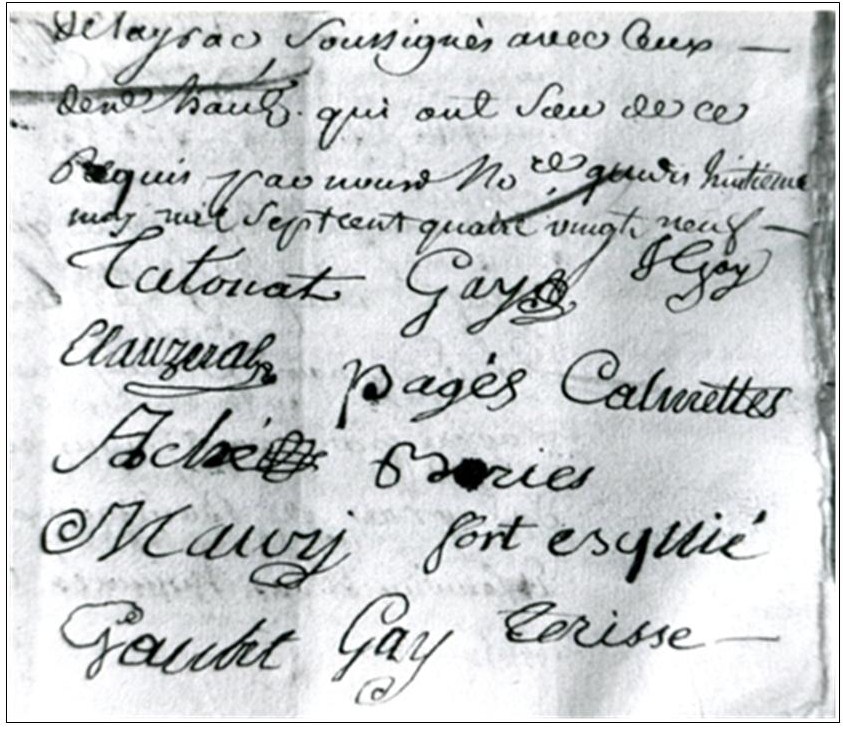 delayrac soussignés avec ceux —
den haut qui ont sceu de ce
Requis par nous No.re gindou huitieme
may mil sept cent quatre vingt neuf —
Tatouat Gay J Gay
Clauzeral
pagés Calmettes
Aché Bories
Maury fort esquié
Gaubt Gay Terisse —